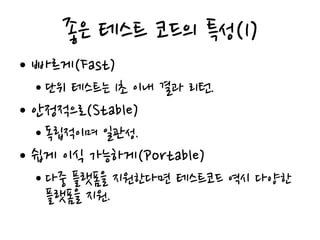 좋은 테스트 코드의 특성(1)
• 빠르게(Fast)
• 단위 테스트는 1초 이내 결과 리턴.
• 안정적으로(Stable)
• 독립적이며 일관성.
• 쉽게 이식 가능하게(Portable)
• 다중 플랫폼을 지원한다면 테스트코드 역시 다양한
플랫폼을 지원.